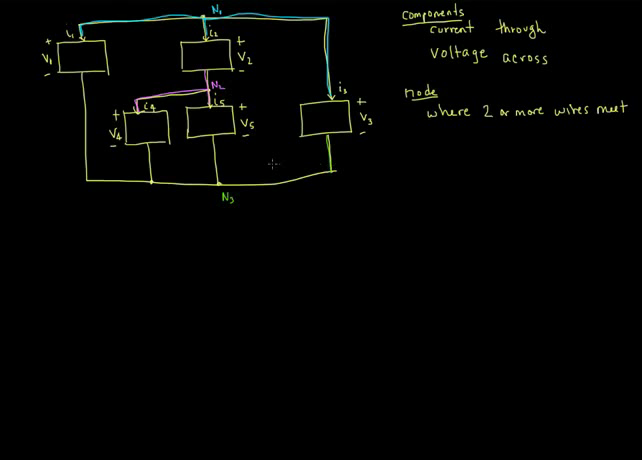 N₁
i₁
i₂
+
V₁
-
+
V₂
-
N₂
i₄
i₅
i₃
+
V₄
-
+
V₅
-
+
V₃
-
N₃
Components
current through
Voltage across
node
where 2 or more wires meet